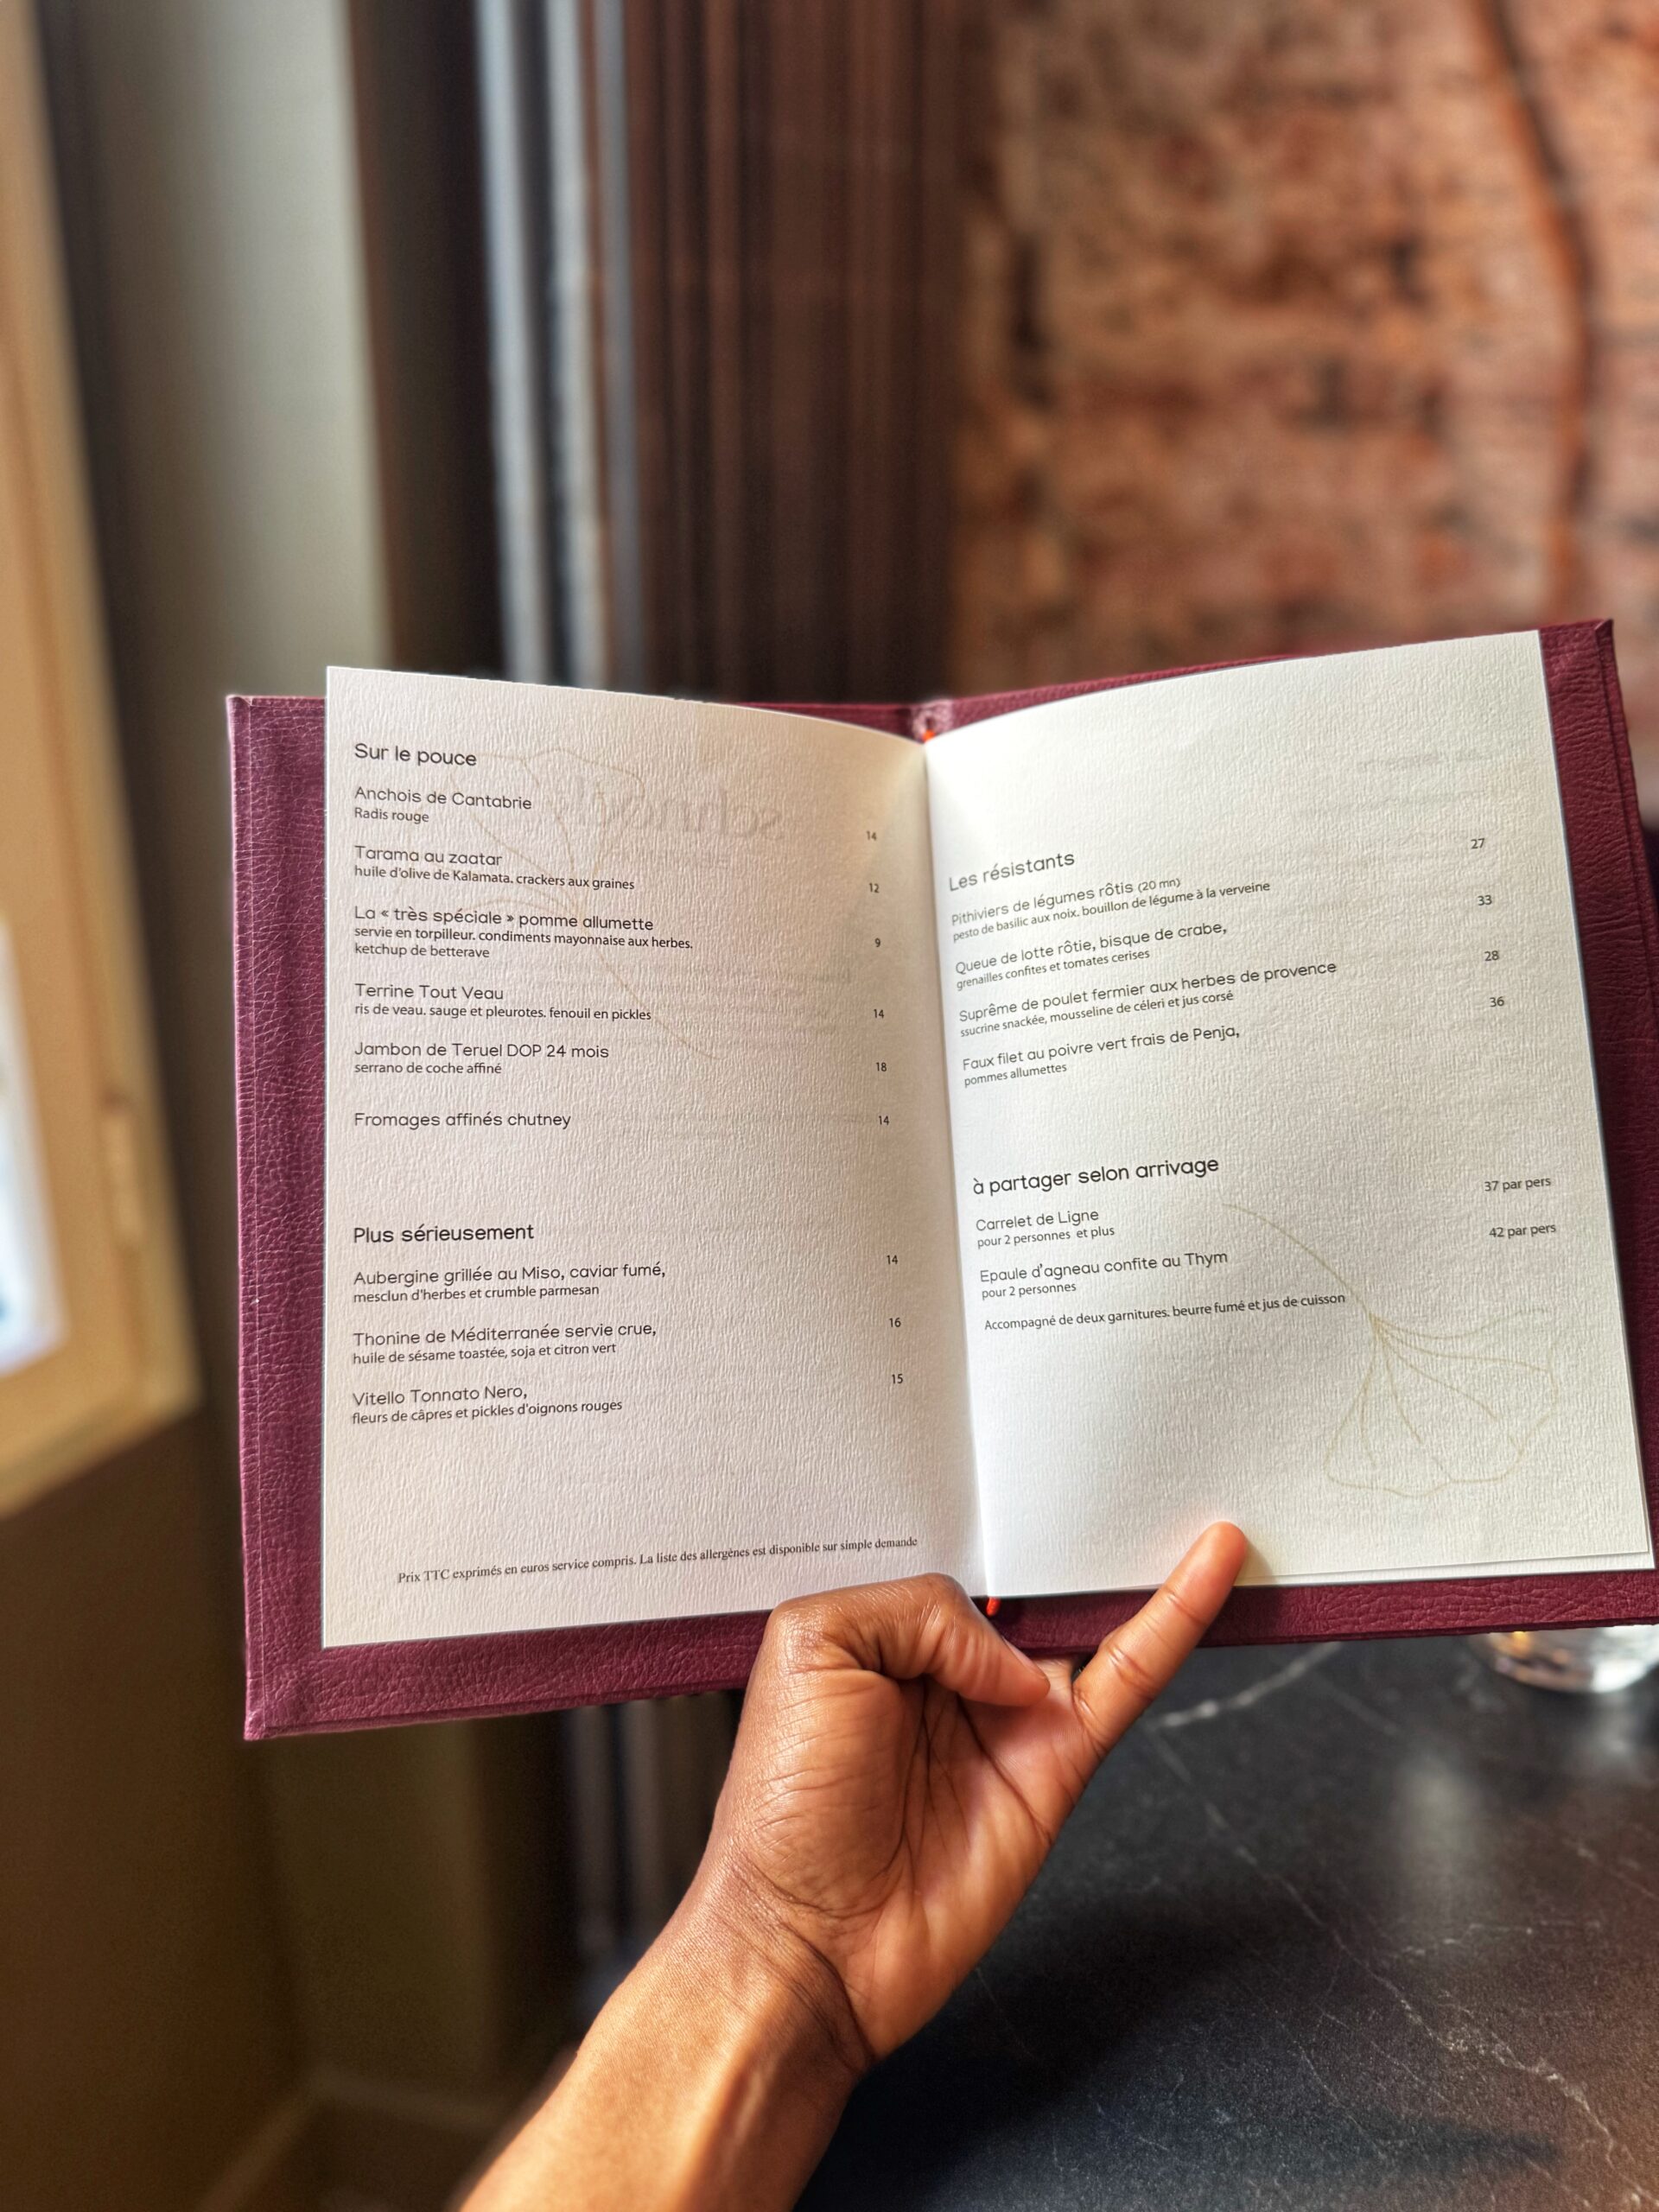 Sur le pouce
Anchois de Cantabrie
Radis rouge
14
Tarama au zaatar
huile d'olive de Kalamata. crackers aux graines
12
La « très spéciale » pomme allumette
servie en torpilleur. condiments mayonnaise aux herbes.
ketchup de betterave
9
Terrine Tout Veau
ris de veau. sauge et pleurotes. fenouil en pickles
14
Jambon de Teruel DOP 24 mois
serrano de coche affiné
18
Fromages affinés chutney
14
Plus sérieusement
Aubergine grillée au Miso, caviar fumé,
mesclun d'herbes et crumble parmesan
14
Thonine de Méditerranée servie crue,
huile de sésame toastée, soja et citron vert
16
Vitello Tonnato Nero,
fleurs de câpres et pickles d'oignons rouges
15
Prix TTC exprimés en euros service compris. La liste des allergènes est disponible sur simple demande
Les résistants
Pithiviers de légumes rôtis (20 mn)
pesto de basilic aux noix. bouillon de légume à la verveine
27
Queue de lotte rôtie, bisque de crabe,
grenailles confites et tomates cerises
33
Suprême de poulet fermier aux herbes de provence
ssucrine snackée, mousseline de céleri et jus corsé
28
Faux filet au poivre vert frais de Penja,
pommes allumettes
36
à partager selon arrivage
Carrelet de Ligne
pour 2 personnes et plus
37 par pers
Epaule d'agneau confite au Thym
pour 2 personnes
42 par pers
Accompagné de deux garnitures. beurre fumé et jus de cuisson